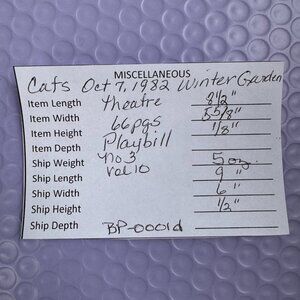 MISCELLANEOUS
Cats Oct 7, 1982 Winter Garden
Item Length Theatre 8 1/2"
Item Width 66 pgs 5 5/8"
Item Height Playbill 1/8"
Item Depth No 3
Ship Weight Vol 10 5 oz
Ship Length 9"
Ship Width 6"
Ship Height 1/2"
Ship Depth BP-0001d